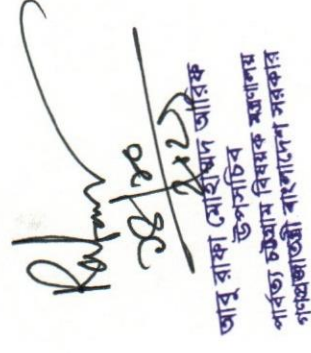 ২৪/১০
আবু রাফা মোহাম্মদ আরিফ
উপসচিব
পার্বত্য চট্টগ্রাম বিষয়ক মন্ত্রণালয়
গণপ্রজাতন্ত্রী বাংলাদেশ সরকার